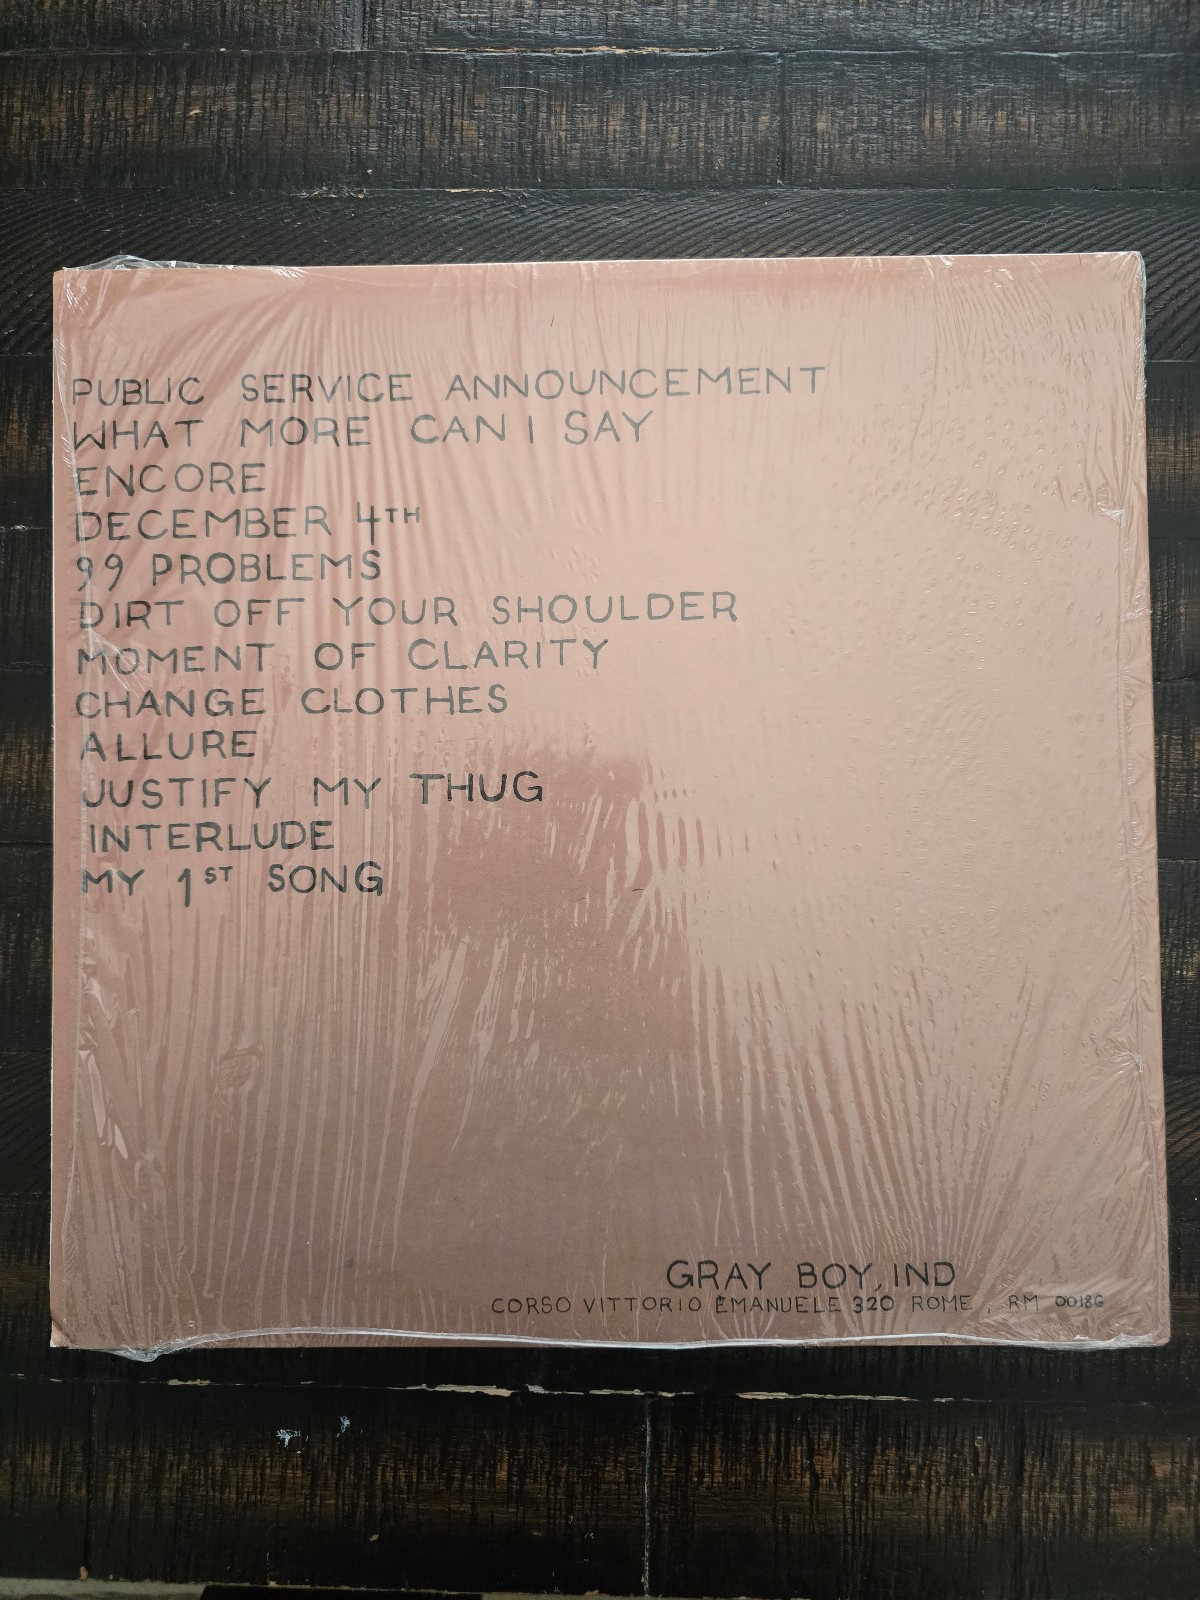 PUBLIC SERVICE ANNOUNCEMENT
WHAT MORE CAN I SAY
ENCORE
DECEMBER 4TH
99 PROBLEMS
DIRT OFF YOUR SHOULDER
MOMENT OF CLARITY
CHANGE CLOTHES
ALLURE
JUSTIFY MY THUG
INTERLUDE
MY 1ST SONG
GRAY BOY, IND
CORSO VITTORIO EMANUELE 320 ROME, RM 00186